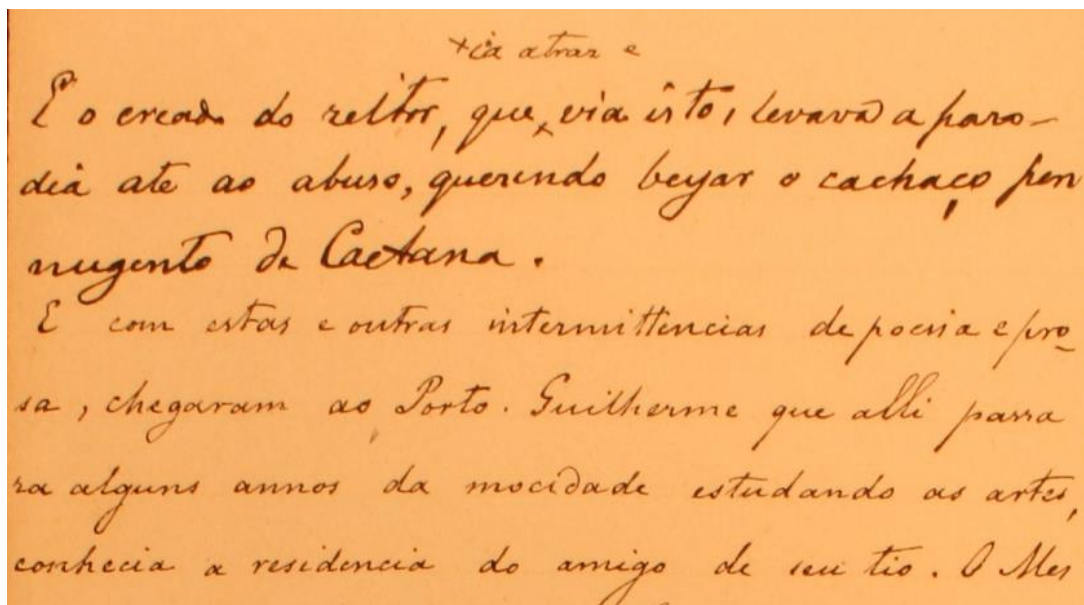 x ia atraz e
E o creado do reitor, que x via isto, levava a paro-
dia até ao abuso, querendo beijar o cachaço pen
nugento de Caetana.
E com estas e outras intermittencias de poesia e pro-
sa, chegaram ao Porto. Guilherme que alli passa
ra alguns annos da mocidade estudando as artes,
conhecia a residencia do amigo de seu tio. O Mes